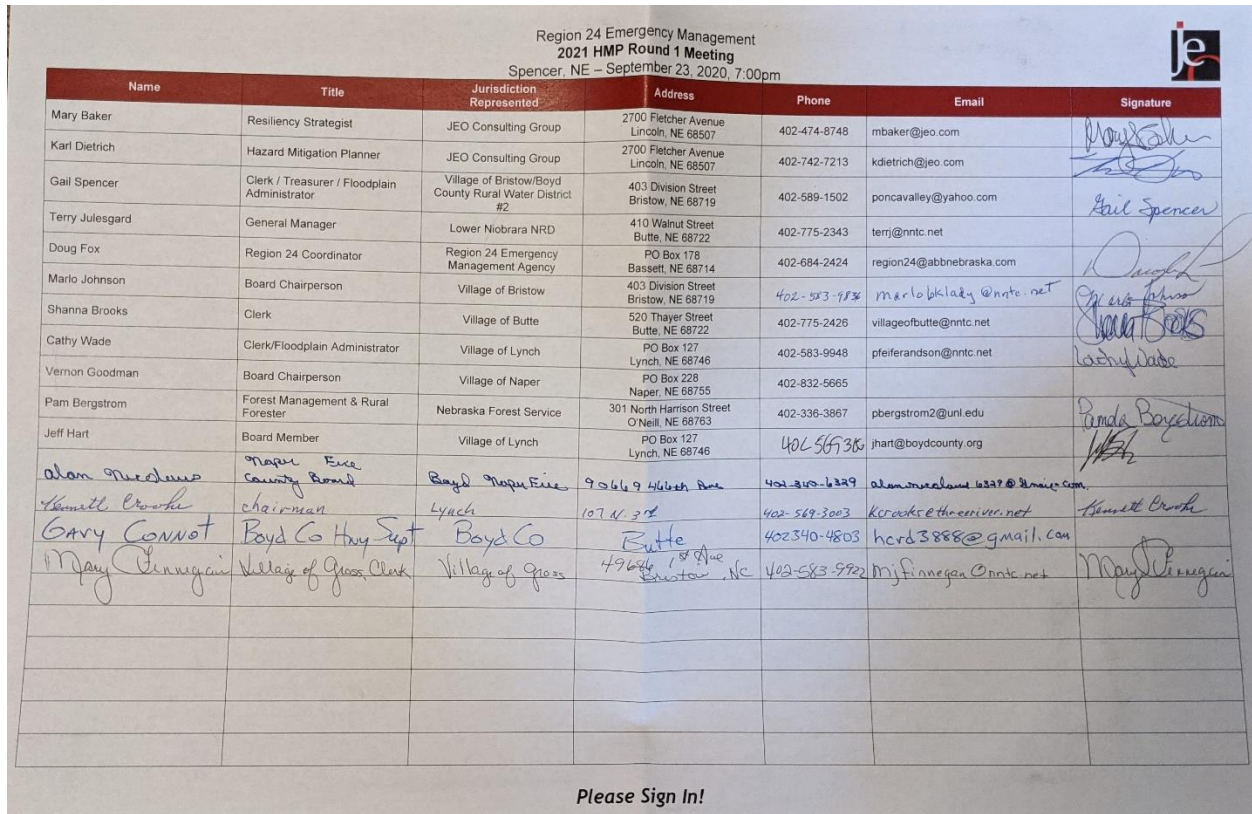 Region 24 Emergency Management
2021 HMP Round 1 Meeting
Spencer, NE – September 23, 2020, 7:00pm
je
Name Title Jurisdiction Represented Address Phone Email Signature
Mary Baker Resiliency Strategist JEO Consulting Group 2700 Fletcher Avenue Lincoln, NE 68507 402-474-8748 mbaker@jeo.com Mary Baker
Karl Dietrich Hazard Mitigation Planner JEO Consulting Group 2700 Fletcher Avenue Lincoln, NE 68507 402-742-7213 kdietrich@jeo.com
Gail Spencer Clerk / Treasurer / Floodplain Administrator Village of Bristow/Boyd County Rural Water District #2 403 Division Street Bristow, NE 68719 402-589-1502 poncavalley@yahoo.com Gail Spencer
Terry Julesgard General Manager Lower Niobrara NRD 410 Walnut Street Butte, NE 68722 402-775-2343 terrj@nntc.net
Doug Fox Region 24 Coordinator Region 24 Emergency Management Agency PO Box 178 Bassett, NE 68714 402-684-2424 region24@abbnebraska.com
Marlo Johnson Board Chairperson Village of Bristow 403 Division Street Bristow, NE 68719 402-583-9836 marlobklady@nntc.net Marlo Johnson
Shanna Brooks Clerk Village of Butte 520 Thayer Street Butte, NE 68722 402-775-2426 villageofbutte@nntc.net Shanna Brooks
Cathy Wade Clerk/Floodplain Administrator Village of Lynch PO Box 127 Lynch, NE 68746 402-583-9948 pfeiferandson@nntc.net Cathy Wade
Vernon Goodman Board Chairperson Village of Naper PO Box 228 Naper, NE 68755 402-832-5665
Pam Bergstrom Forest Management & Rural Forester Nebraska Forest Service 301 North Harrison Street O'Neill, NE 68763 402-336-3867 pbergstrom2@unl.edu Pamela Bergstrom
Jeff Hart Board Member Village of Lynch PO Box 127 Lynch, NE 68746 jhart@boydcounty.org
alan Nicolaus Naper Fire County Board Boyd Naper Fire 90669 466th Ave 402-340-6329
Kenneth Crooks chairman Lynch 107 N. 3rd 402-569-3003 Kcrooks@threeriver.net Kenneth Crooks
GARY CONNOT Boyd Co Hwy Supt Boyd Co Butte 402340-4803 hcrd3888@gmail.com
Mary Finnegan Village of Gross Clerk Village of Gross 49686 1st Ave Bristow, Ne 402-583-9922 mjfinnegan@nntc.net Mary Finnegan
Please Sign In!